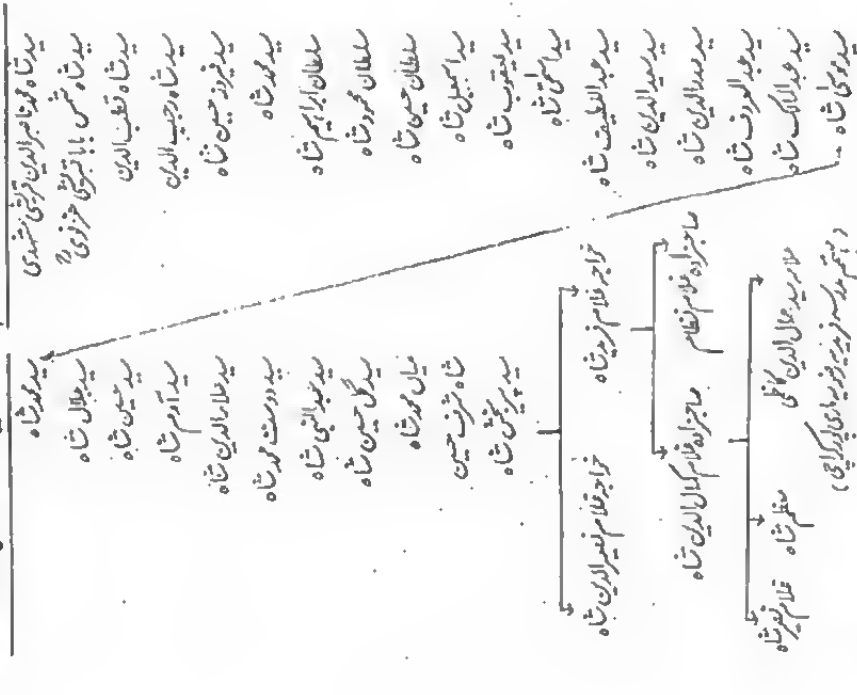 سید شاہ محمد ناصر الدین قریشی مشہدی
سید شاہ شمس بابا تبریزی غزنوی رح
سید شاہ قطب الدین
سید شاہ رجیب الدین
سید فیروز حسین شاہ
سید محمد شاہ
سلطان ابراہیم شاہ
سلطان محمود شاہ
سلطان حسین شاہ
سید اسمعیل شاہ
سید یعقوب شاہ
سید اسحٰق شاہ
سید عبد اللطیف شاہ
سید سعید الدین شاہ
سید صدر الدین شاہ
سید عبد الرؤف شاہ
سید عبد المالک شاہ
سید موسیٰ شاہ
سید محمد شاہ
سید جلال شاہ
سید حسین شاہ
سید آدم شاہ
سید علاء الدین شاہ
سید دوست محمد شاہ
سید عبد النبی شاہ
سید گل حسین شاہ
میاں محمد شاہ
شاہ شرف حسین
سید پیر بخش شاہ
خواجہ غلام فرید شاہ
خواجہ غلام نصیر الدین شاہ
صاحبزادہ غلام نظام
صاحبزادہ غلام کمال الدین شاہ
علامہ سید جمال الدین کاظمی
مظہر شاہ
غلام نصیر شاہ
(مہتمم مدرسہ فریدیہ کراچی)